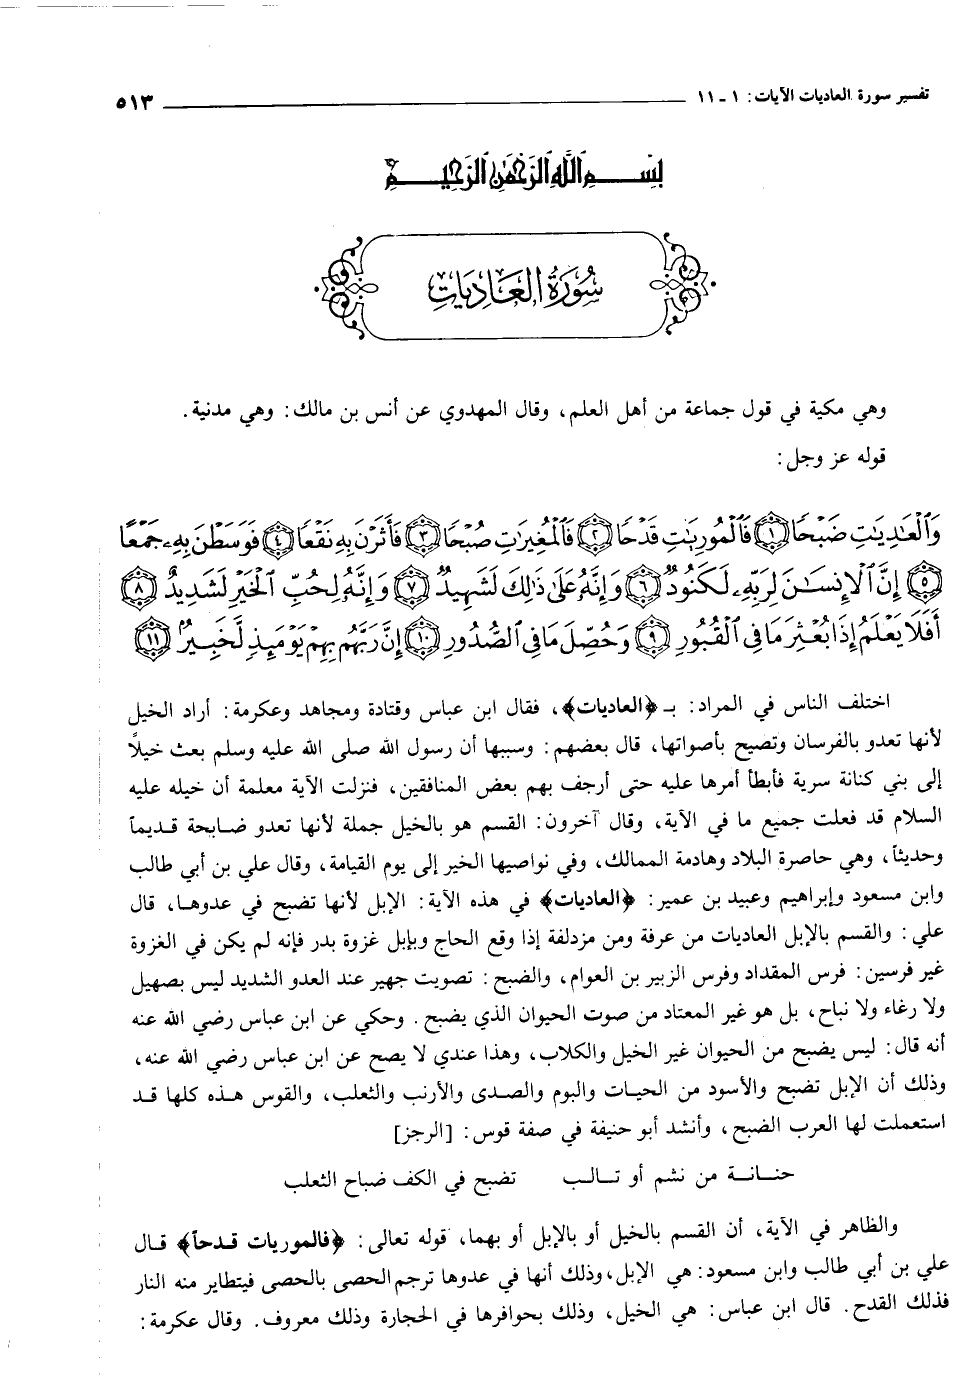 تفسير سورة العاديات الآيات: ١ - ١١ ٥١٣
بِسْمِ اللَّهِ الرَّحْمَٰنِ الرَّحِيمِ
سُورَةُ العَادِيَاتِ
وهي مكية في قول جماعة من أهل العلم، وقال المهدوي عن أنس بن مالك: وهي مدنية.
قوله عز وجل:
وَالْعَٰدِيَٰتِ ضَبْحًا ١ فَالْمُورِيَٰتِ قَدْحًا ٢ فَالْمُغِيرَٰتِ صُبْحًا ٣ فَأَثَرْنَ بِهِۦ نَقْعًا ٤ فَوَسَطْنَ بِهِۦ جَمْعًا
٥ إِنَّ الْإِنسَٰنَ لِرَبِّهِۦ لَكَنُودٌ ٦ وَإِنَّهُۥ عَلَىٰ ذَٰلِكَ لَشَهِيدٌ ٧ وَإِنَّهُۥ لِحُبِّ الْخَيْرِ لَشَدِيدٌ ٨
أَفَلَا يَعْلَمُ إِذَا بُعْثِرَ مَا فِي الْقُبُورِ ٩ وَحُصِّلَ مَا فِي الصُّدُورِ ١٠ إِنَّ رَبَّهُم بِهِمْ يَوْمَئِذٍ لَّخَبِيرٌ ١١
اختلف الناس في المراد: بـ ﴿العاديات﴾، فقال ابن عباس وقتادة ومجاهد وعكرمة: أراد الخيل
لأنها تعدو بالفرسان وتصيح بأصواتها، قال بعضهم: وسببها أن رسول الله صلى الله عليه وسلم بعث خيلاً
إلى بني كنانة سرية فأبطأ أمرها عليه حتى أرجف بهم بعض المنافقين، فنزلت الآية معلمة أن خيله عليه
السلام قد فعلت جميع ما في الآية، وقال آخرون: القسم هو بالخيل جملة لأنها تعدو ضابحة قديماً
وحديثاً، وهي حاصرة البلاد وهادمة الممالك، وفي نواصيها الخير إلى يوم القيامة، وقال علي بن أبي طالب
وابن مسعود وإبراهيم وعبيد بن عمير: ﴿العاديات﴾ في هذه الآية: الإبل لأنها تضبح في عدوها، قال
علي: والقسم بالإبل العاديات من عرفة ومن مزدلفة إذا وقع الحاج وبإبل غزوة بدر فإنه لم يكن في الغزوة
غير فرسين: فرس المقداد وفرس الزبير بن العوام، والضبح: تصويت جهير عند العدو الشديد ليس بصهيل
ولا رغاء ولا نباح، بل هو غير المعتاد من صوت الحيوان الذي يضبح. وحكي عن ابن عباس رضي الله عنه
أنه قال: ليس يضبح من الحيوان غير الخيل والكلاب، وهذا عندي لا يصح عن ابن عباس رضي الله عنه،
وذلك أن الإبل تضبح والأسود من الحيات والبوم والصدى والأرنب والثعلب، والقوس هذه كلها قد
استعملت لها العرب الضبح، وأنشد أبو حنيفة في صفة قوس: [الرجز]
حنانة من نشم أو تالب تضبح في الكف ضباح الثعلب
والظاهر في الآية، أن القسم بالخيل أو بالإبل أو بهما، قوله تعالى: ﴿فالموريات قدحاً﴾ قال
علي بن أبي طالب وابن مسعود: هي الإبل، وذلك أنها في عدوها ترجم الحصى بالحصى فيتطاير منه النار
فذلك القدح. قال ابن عباس: هي الخيل، وذلك بحوافرها في الحجارة وذلك معروف. وقال عكرمة: